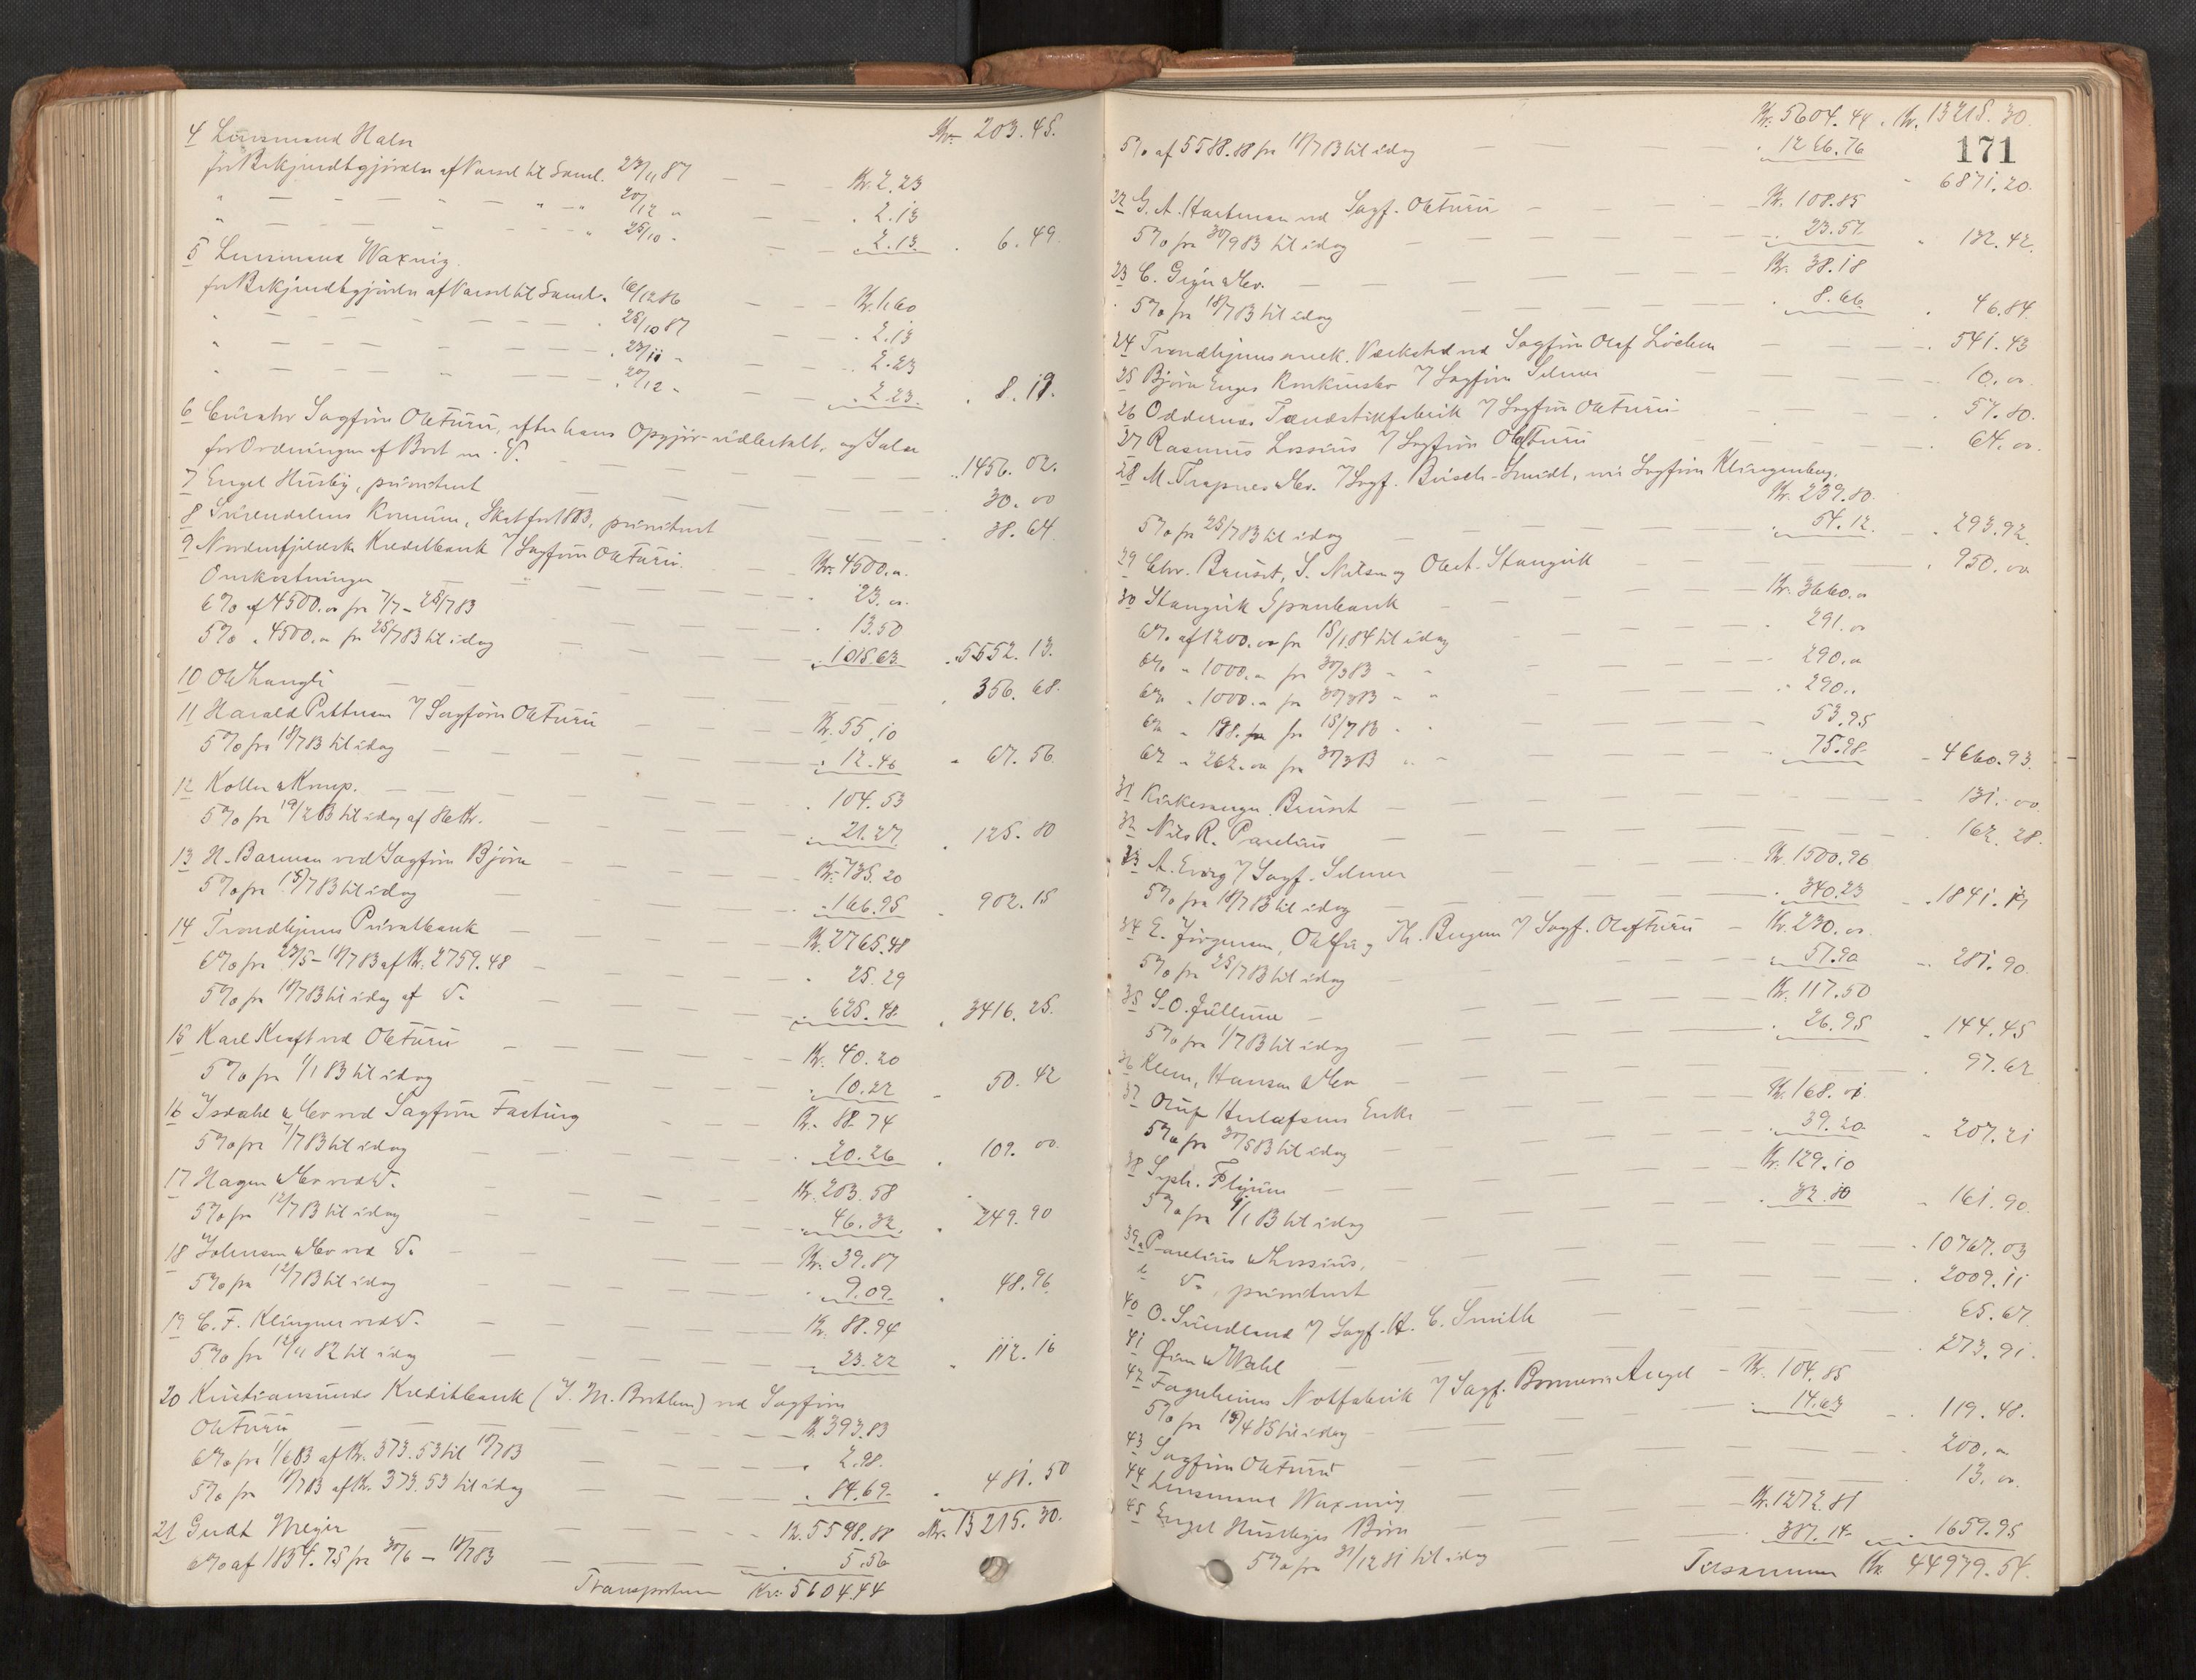 Kr. 203.45.
4 Lensmand Halse
for Bekjendtgjørelse af Varsel til Saml. 23/11 87 — — Kr. 2.23
" — — — — " — " 20/12 " — — " 2.13
" — — — — — " 25/10 " — — " 2.13. " 6.49.
5 Lensmand Waxvig.
for Bekjendtgjørelse af Varsel til Saml. 16/12 86 — — Kr. 1.60
" — — — — — 25/10 87 — — " 2.13
" — — — — — " 23/11 " — — " 2.23
" — — — — — " 20/12 " — — " 2.23. " 8.19.
6 Curator Sagfører Ole Furu, efter hans Opgjør udbetalt, og Salær
for Ordningen af Boet m. V. — — — " 1456.02.
7 Engel Husby, prioritert — — — 30.00
8 Surendalens Komune, Skat for 1883, prioritert — — 38.64
9 Nordenfjeldske Kreditbank v/ Sagfører Ole Furu. — Kr. 4500.00
Omkostninger — " — — " 23.00
6% af 4500.00 fra 7/7 – 25/7 83 — — " 13.50
5% " 4500.00 fra 25/7 83 til idag — — " 1015.63 " 5552.13.
10 Ole Kangli — — — " 356.68.
11 Harald Pettersen v/ Sagfører Ole Furu — Kr. 55.10
5% fra 18/7 83 til idag — — " 12.46 " 67.56
12 Koller & Komp. — — — " 104.53
5% fra 19/2 83 til idag af 86 Kr. — — " 21.27 " 125.80
13 H. Barman ved Sagfører Bjørn — — Kr. 735.20
5% fra 15/7 83 til idag — — " 166.95 " 902.15
14 Trondhjems Privatbank — — Kr. 2765.48
6% fra 23/5 – 18/7 83 af Kr. 2759.48 — " 25.29
5% fra 18/7 83 til idag af D. — — " 625.48 " 3416.25.
15 Karl Kraft ved Ole Furu — — Kr. 40.20
5% fra 1/1 83 til idag — — " 10.22 " 50.42
16 Isdahl & Co ved Sagfører Fasting — Kr. 88.74
5% fra 7/7 83 til idag — — " 20.26 " 109.00
17 Hagen & Co ved D. — — Kr. 203.58
5% fra 12/7 83 til idag — — " 46.32. " 249.90
18 Johnsen & Co ved D. — — Kr. 39.87
5% fra 12/7 83 til idag — — " 9.09. " 48.96.
19 C. F. Klingner ved D. — — Kr. 88.94
5% fra 12/11 82 til idag — — " 23.22 " 112.16
20 Kristiansunds Kreditbank (J. M. Botten) ved Sagfører
Ole Furu — — — Kr. 393.83
6% fra 1/6 83 af Kr. 373.53 til 18/7 83 — " 2.98.
5% fra 18/7 83 af Kr. 373.53 til idag — " 84.69. " 481.50
21 Gerdt Meyer — — Kr. 5598.88 Kr. 13215.30.
6% af 1854.75 fra 30/6 – 18/7 83 — — " 5.56
Transporteres Kr. 5604.44
Kr. 5604.44. Kr. 13215.30.
171
5% af 5588.88 fra 18/7 83 til idag — — " 1266.76 " 6871.20.
22 G. A. Hartman ved Sagf. Ole Furu — — Kr. 108.85
5% fra 30/9 83 til idag — — " 23.57 " 132.42.
23 C. Geijer & Co. — — Kr. 38.18
5% fra 18/7 83 til idag — — " 8.66 " 46.84.
24 Trondhjems mek. Værksted ved Sagfører Olaf Løchen — — " 541.43
25 Bjørn Enges Konkursbo v/ Sagfører Selmer — — 10.00
26 Oddernes Tændstikfabrik v/ Sagfører Ole Furu — — " 57.80.
27 Rasmus Lossius v/ Sagfører Ole Furu — — " 64.00.
28 M. Trapnes & Co. v/ Sagf. Busch-Smidt, nu Sagfører Klingenberg. Kr. 239.80.
5% fra 25/7 83 til idag — — " 54.12. " 293.92.
29 Chr. Bruset, S. Nilsen og Olert. Stangvik — — " 950.00
30 Stangvik Sparebank — — Kr. 3660.00
6% af 1200.00 fra 15/1 84 til idag — — " 291.00
6% " 1000.00 fra 30/3 83 " " — — 290.00
6% " 1000.00 fra 30/3 83 " " — — " 290.00
6% " 198.00 fra 15/7 83 " " — — 53.95
6% " 262.00 fra 30/3 83 " " — — " 75.98. " 4660.93.
31 Kirkesanger Bruset — — — 131.00
32 Nils R. Parelius — — — " 162.28.
33 A. Evirg v/ Sagf. Selmer — — Kr. 1500.96
5% fra 18/7 83 til idag — — " 340.23 " 1841.19
34 E. Jørgensen, Ole Fur og Th. Bergem v/ Sagf. Ole Furu — Kr. 230.00
5% fra 25/7 83 til idag — — " 51.90 " 281.90.
35 S. O. Jullum — — Kr. 117.50
5% fra 1/7 83 til idag — — " 26.95 " 144.45
36 Klem, Hansen & Co — — — " 97.62
37 Oluf Herlofsens Enke — — Kr. 168.01
5% fra 30/5 83 til idag — — " 39.20 " 207.21
38 Soph. Flyum — — Kr. 129.10
5% fra 1/1 83 til idag — — " 32.80 " 161.90.
39 a Parelius & Lossius, — — — " 10767.03
b D., prioritert — — — " 2009.11
40 O. Sundland v/ Sagf. H. C. Smith — — 65.67.
41 Øien & Wahl — — — " 273.91.
42 Fagerheims Notfabrik v/ Sagf. Bonnevie Angel — Kr. 104.85
5% fra 15/4 85 til idag — — " 14.63 " 119.48.
43 Sagfører Ole Furu — — — 200.00
44 Lensmand Waxvig — — — 13.00
45 Engel Husebyes Børn — — Kr. 1272.81
5% fra 31/12 81 til idag — — " 387.14 " 1659.95
Tilsammen Kr. 44939.54.